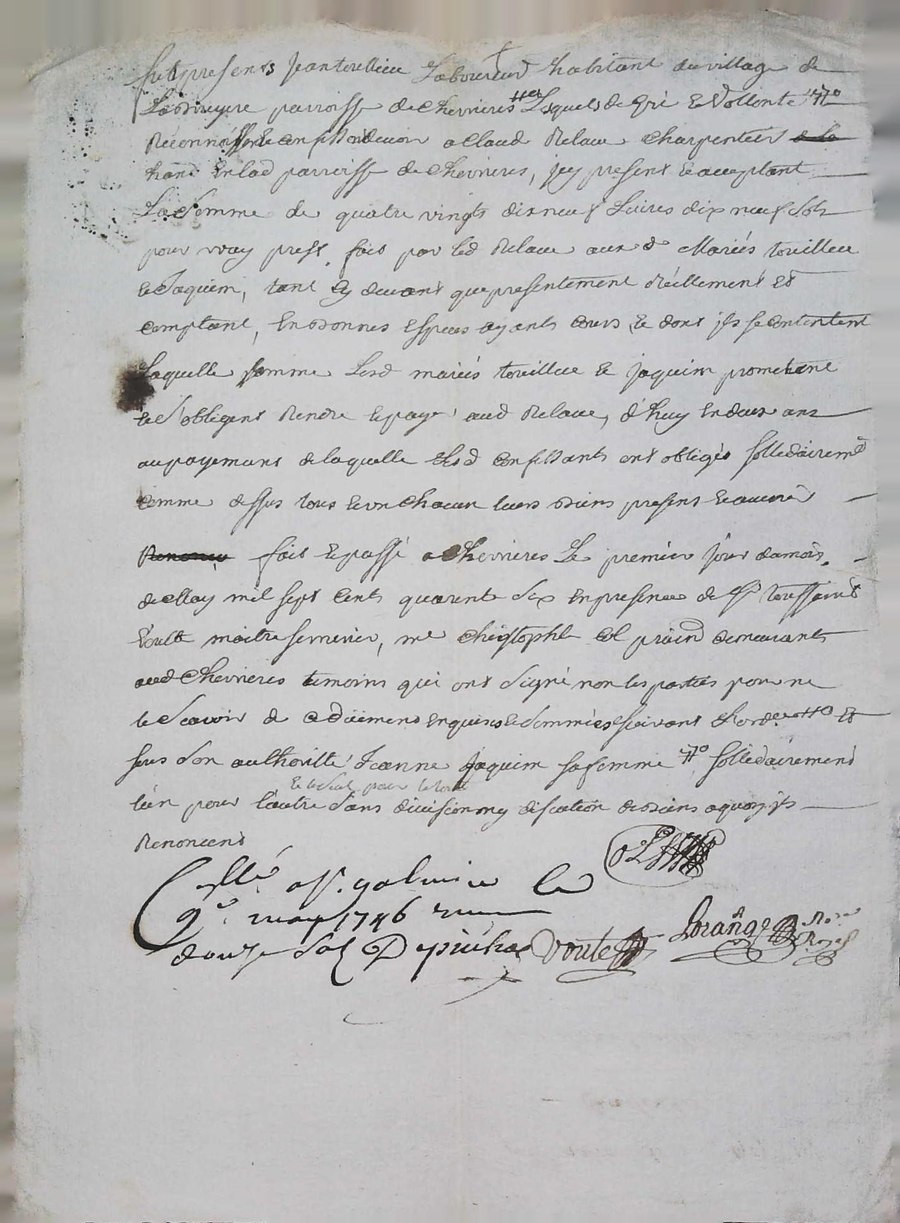 fut presents Jean touillieu Laboureur habitant du village de
Labruyere parroisse de Chevrieres Lesquels de gré et Vollonte
Reconnoissent confessent devoir a Claud Relave charpentier
hand en lad parroisse de Chevrieres, jcy present et acceptant
La somme de quatre vingts dix neuf Livres dix neuf sols
pour vray prest fait par led Relave aux d Mariés touillieu
et Jaquem, tant cy devant que presentement réellement et
comptant, en bonnes especes ayants cours, et dont jls se contentent
Laquelle somme Lesd mariés touillieu et jaquem promettent
et s'obligent Rendre et payer aud Relave, d'huy en deux ans
au payement de laquelle lesd confessants ont obligés sollidairemt
comme dessus tous et un chacun leurs biens presents et avenir
fait et passé a Chevrieres Le premier jour du mois
de May mil sept cents quarente six en presence de Sr toussaint
Voute maitre serrurier, me Christophle demeurants
aud Chevrieres temoins qui ont signé non les parties pour ne
le Scavoir de ce düement enquises et sommées suivant L'ordce et
sous son authoritté Jeanne Jaquem sa femme sollidairement
et le seul pour le tout
l'un pour l'autre sans division ny discution de biens a quoy jls
Renoncent
Collé a St galmier le
9e may 1746 reçu
douze sols Depiucha
Voute
Lorange Nore
Royal